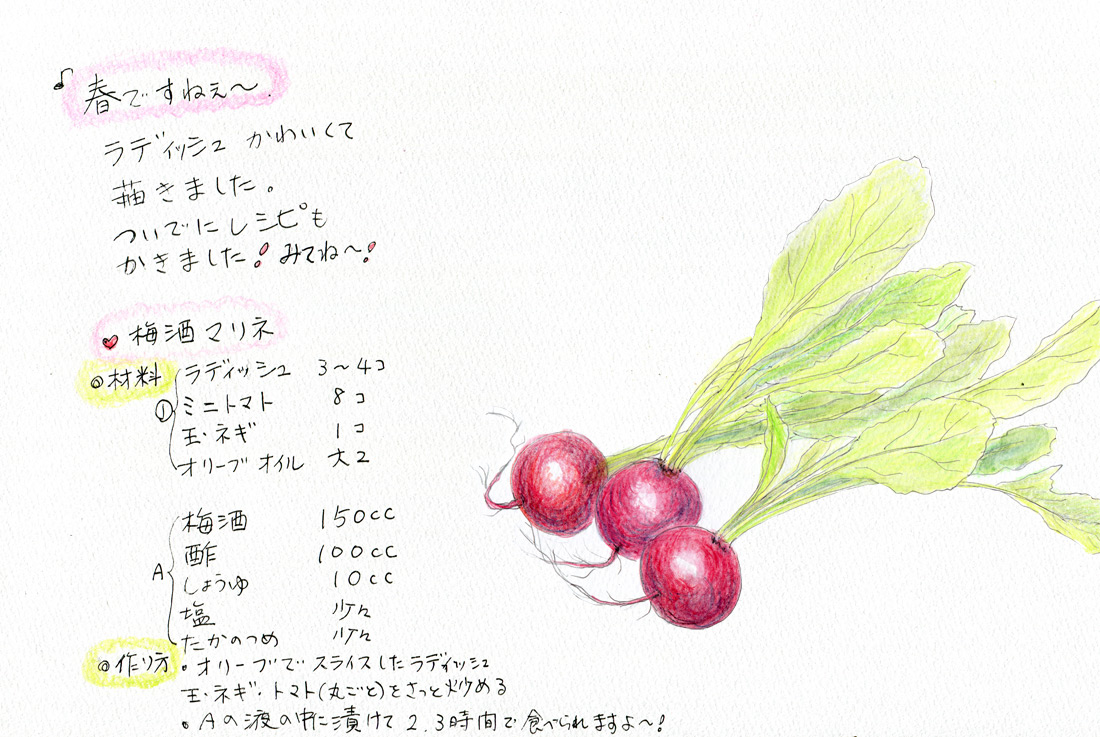 ♪春ですねぇ〜.
ラディッシュ かわいくて
描きました。
ついでにレシピも
かきました! みてね〜!
♥梅酒マリネ
◎材料
① ラディッシュ 3〜4コ
ミニトマト 8コ
玉・ネギ 1コ
オリーブオイル 大2
A 梅酒 150cc
酢 100cc
しょうゆ 10cc
塩 少々
たかのつめ 少々
◎作り方
・オリーブで スライスしたラディッシュ
玉・ネギ・トマト(丸ごと)をさっと炒める
・Aの液の中に漬けて 2.3時間で食べられますよ〜!